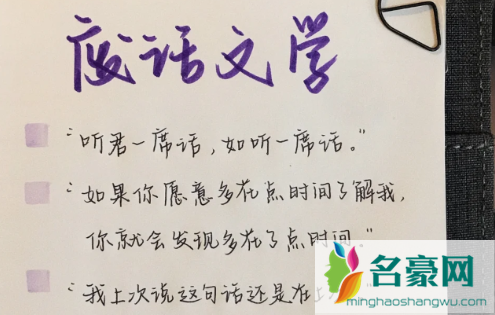 废话文学
"听君一席话,如听一席话。"
"如果你愿意多花点时间了解我,
你就会发现多花了点时间。"
"我上次说这句话还是在上
名豪网
minghaoshangwu.com